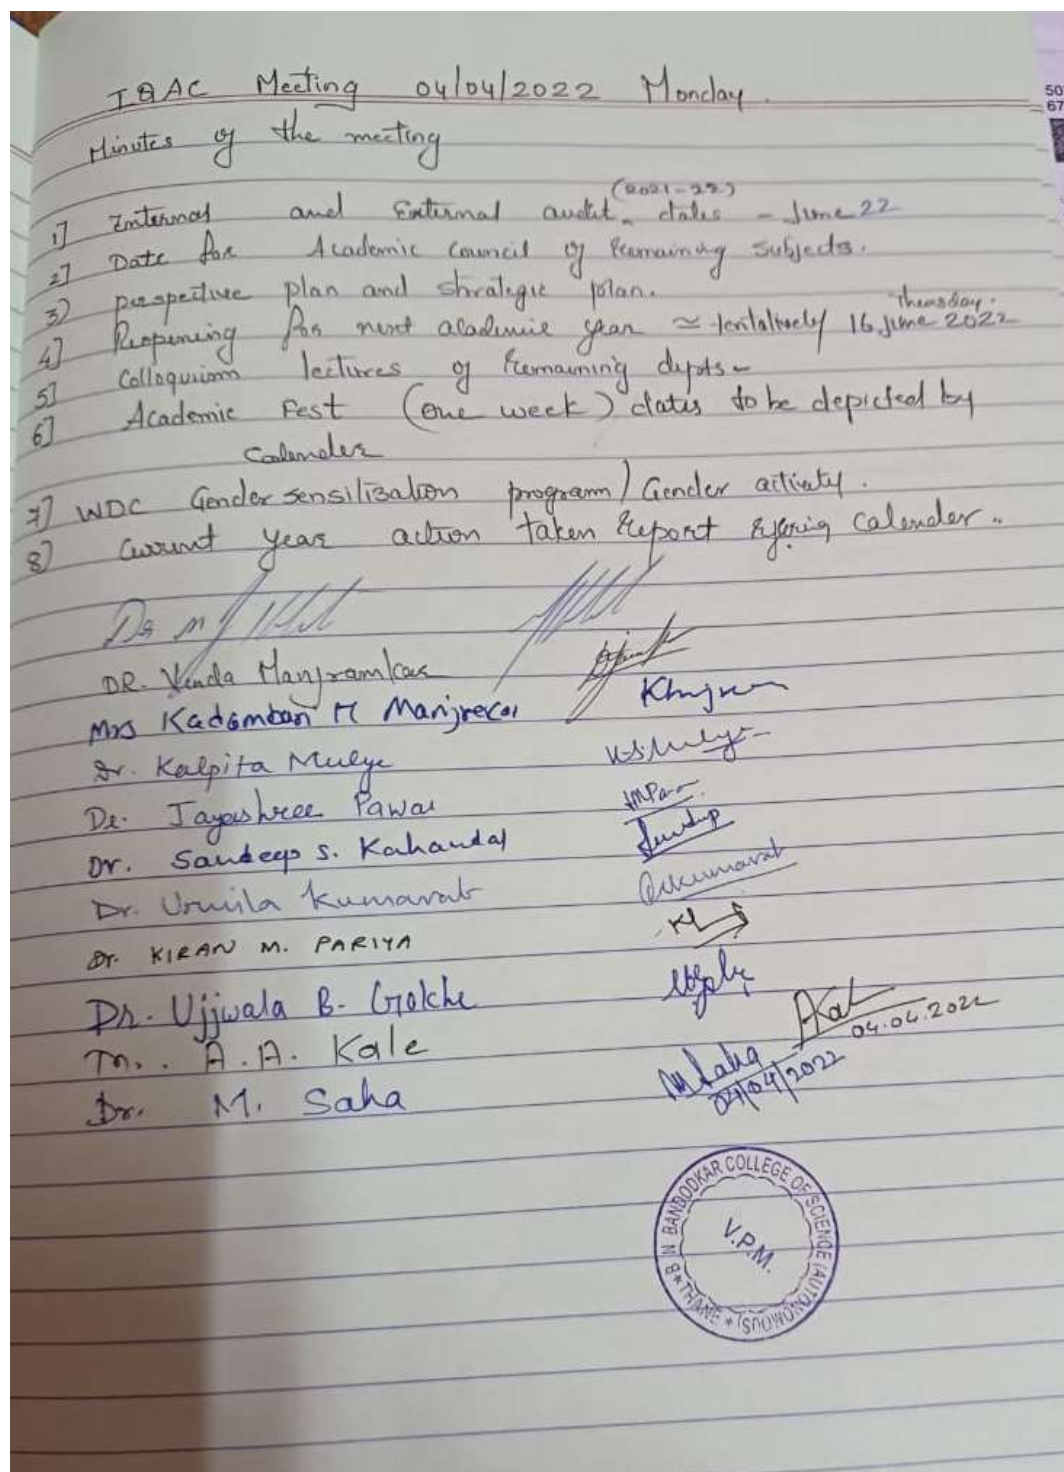 IQAC Meeting 04/04/2022 Monday.
Minutes of the meeting
(2021-22)
1] Internal and External audit dates - June 22
2] Date for Academic Council of Remaining Subjects.
3) perspective plan and strategic plan.
Thursday.
4] Reopening for next academic year ≃ tentatively 16 June 2022
5] Colloquium lectures of Remaining depts-
6] Academic Fest (One week) dates to be depicted by
Calender
7] WDC Gender sensilization programm/Gender activity.
8] Current year action taken Report calender..
DR. Vinda Manjramkar
Mrs Kadamban M Manjrekar
Dr. Kalpita Mulye
Dr. Jayashree Pawar
Dr. Sandeep S. Kahandal
Dr. Urmila Kumavat
Dr. KIRAN M. PARIYA
Dr. Ujjwala B. Gokhe
A.A. Kale
04.04.2022
Dr. M. Saha MSaha
04/04/2022
B N BANDODKAR COLLEGE OF SCIENCE (AUTONOMOUS) * THANE *
V.P.M.